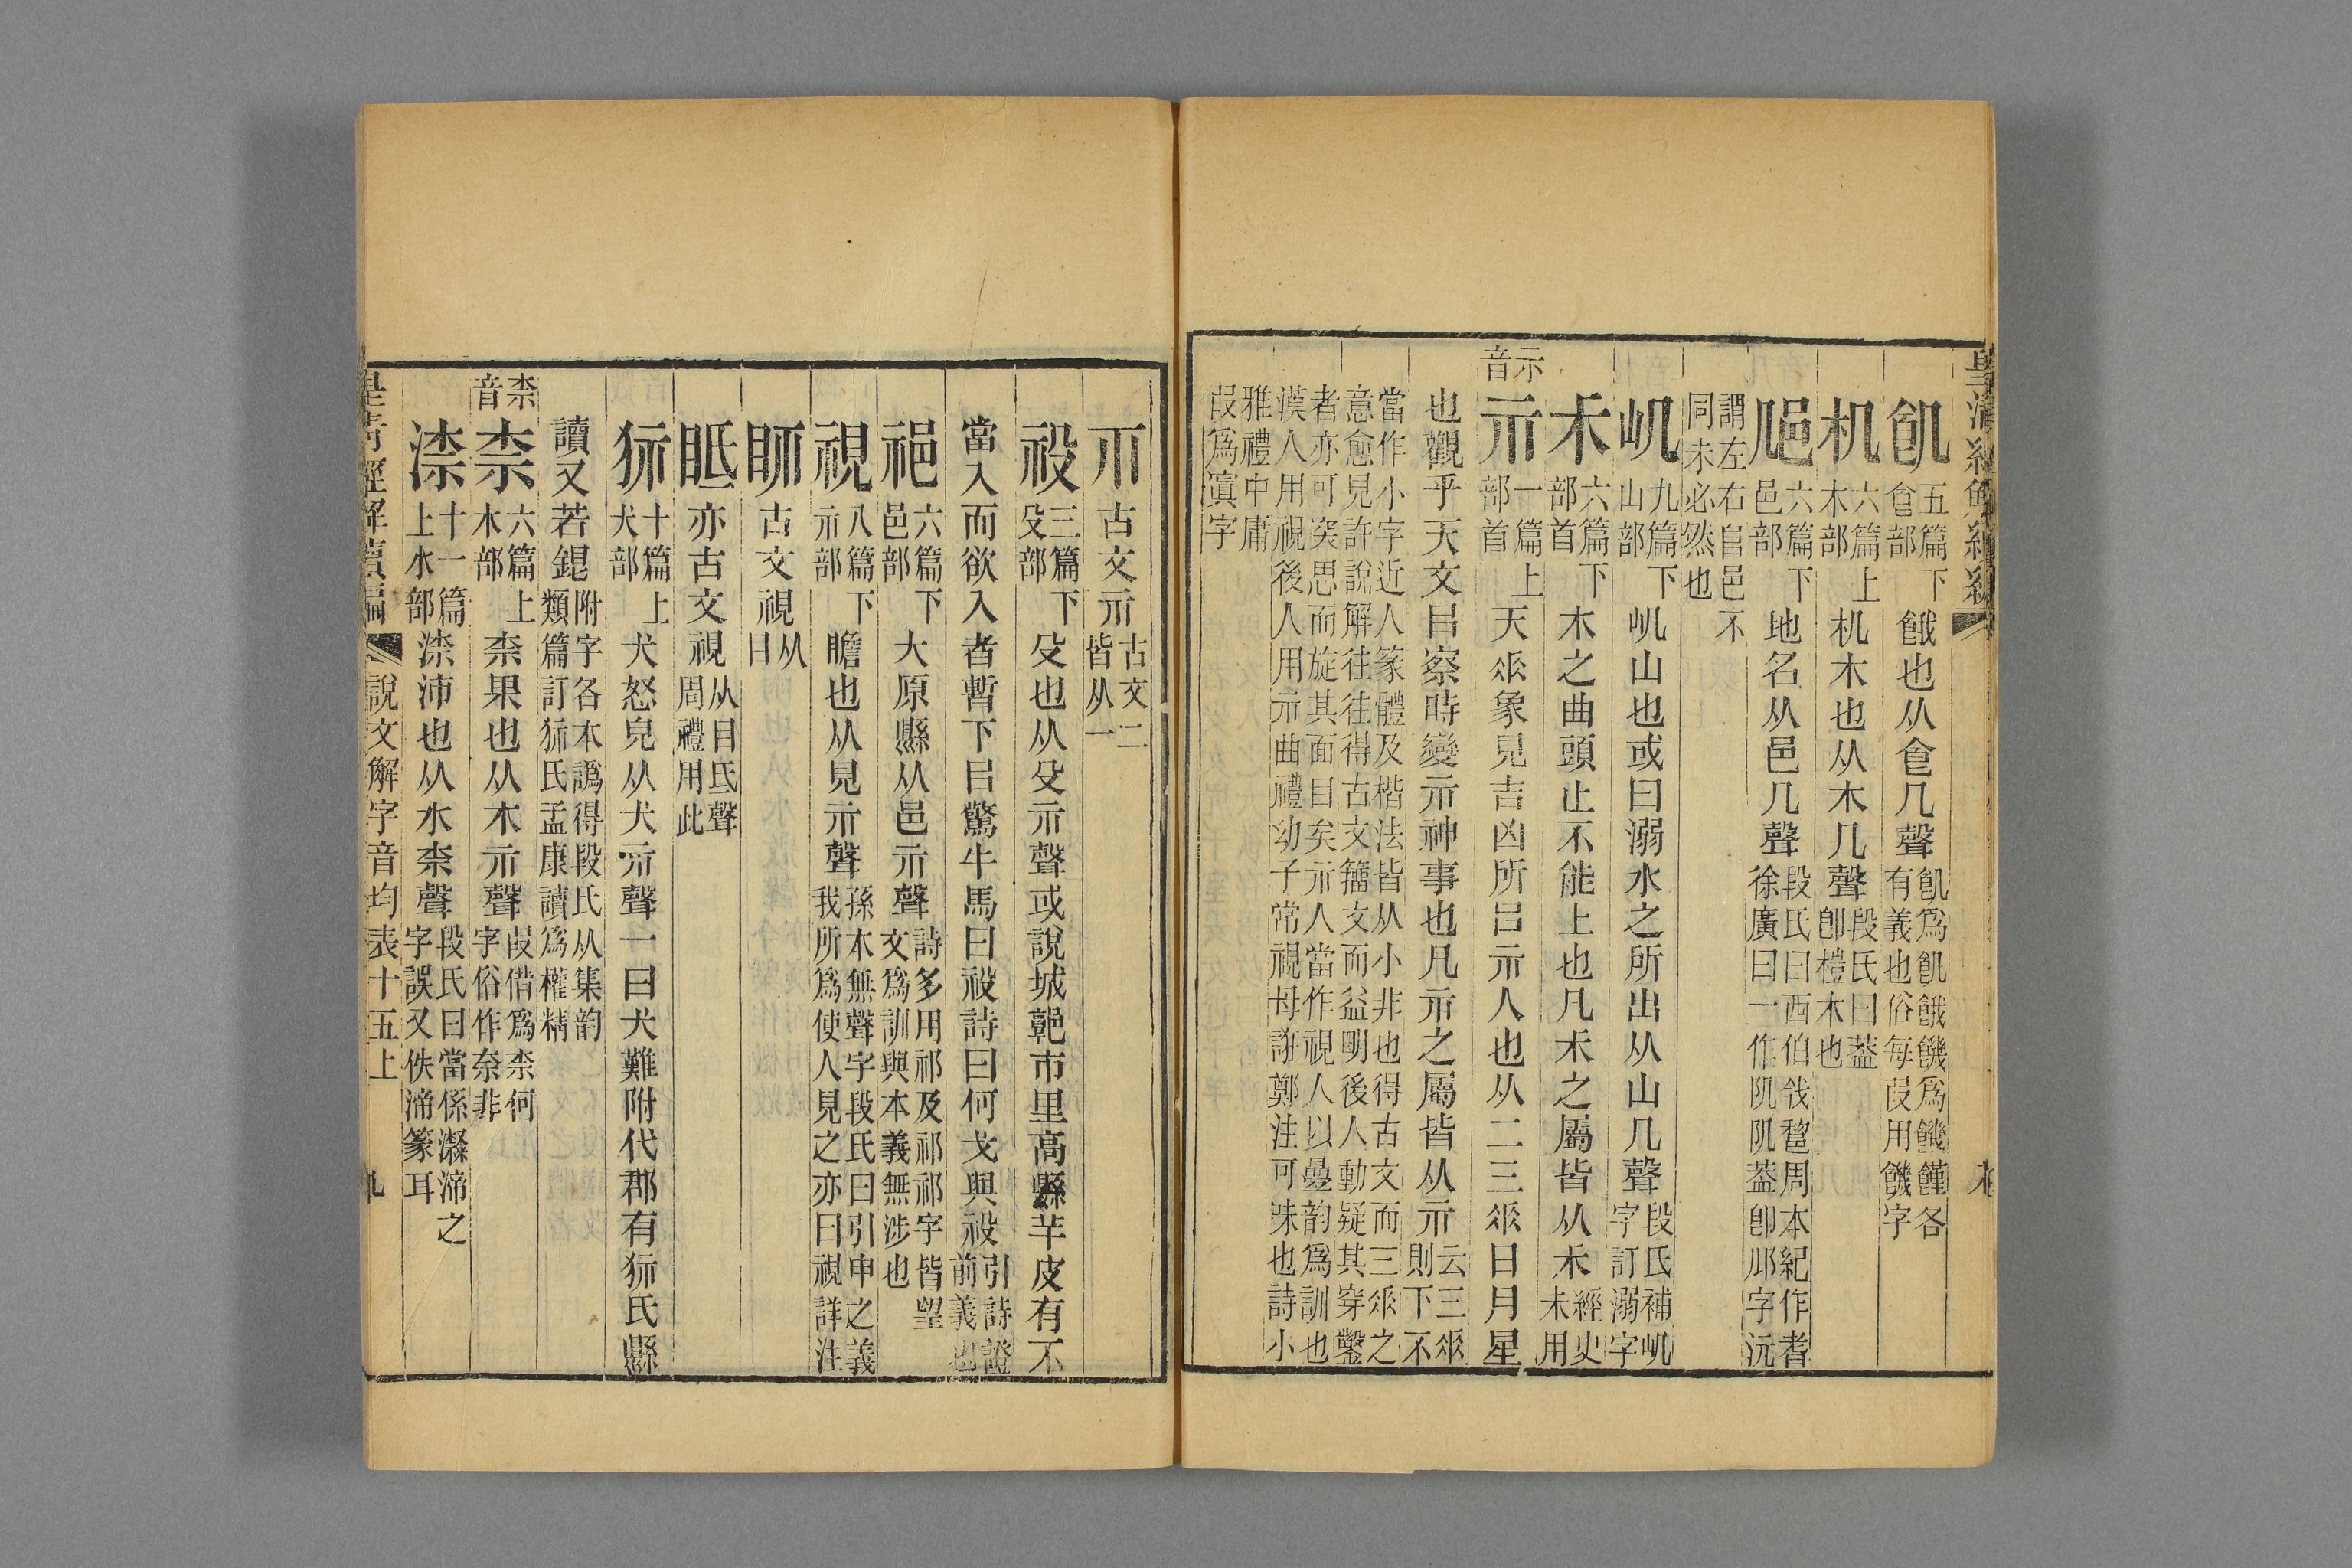 皇清經解續編
飢五篇下𠊊部餓也从𠊊几聲飢爲飢餓饑爲饑饉各有義也俗每叚用饑字
机六篇上木部机木也从木几聲段氏曰葢卽榿木也
𨙫六篇下邑部地名从邑几聲段氏曰西伯伐䣓周本紀作耆徐廣曰一作阢阢葢卽𨙫字沅
謂左右㠯邑不同未必然也
屼九篇下山部屼山也或曰溺水之所出从山几聲段氏補屼字訂溺字
禾六篇下部首木之曲頭止不能上也凡禾之屬皆从禾經史未用
示音
示一篇上部首天𠂹象見吉凶所㠯示人也从二三𠂹日月星
也觀乎天文㠯察時變示神事也凡示之屬皆从示云三𠂹則下不
當作小字近人篆體及楷法皆从小非也得古文而三𠂹之意愈見許說解往往得古文籒文而益明後人動疑其穿鑿
者亦可突思而旋其面目矣示人當作視人以㬪韵爲訓也漢人用視後人用示曲禮幼子常視毋誑鄭注可昧也詩小
雅禮中庸叚爲寘字
𠕁古文示古文二皆从一
祋三篇下殳部殳也从殳示聲或說城郭市里高縣羊皮有不
當入而欲入者暫下㠯驚牛馬曰祋詩曰何戈與祋引詩證前義也
祁六篇下邑部大原縣从邑示聲詩多用祁及祁祁字皆望文爲訓與本義無涉也
視八篇下示部瞻也从見示聲孫本無聲字段氏曰引申之義我所爲使人見之亦曰視詳注
眎古文視从目
眡亦古文視从目氐聲周禮用此
狋十篇上犬部犬怒皃从犬示聲一曰犬難附代郡有狋氏縣
讀又若銀附字各本譌得段氏从集韵類篇訂狋氏孟康讀爲權精
柰音
柰六篇上木部柰果也从木示聲叚借爲柰何字俗作奈非
渿十一篇上水部渿沛也从水柰聲段氏曰當係濢渧之字誤又佚渧篆耳
皇清經解續編
說文解字音均表十五上
九